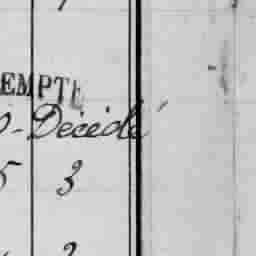 EMPTÉ
- Décédé
5 3